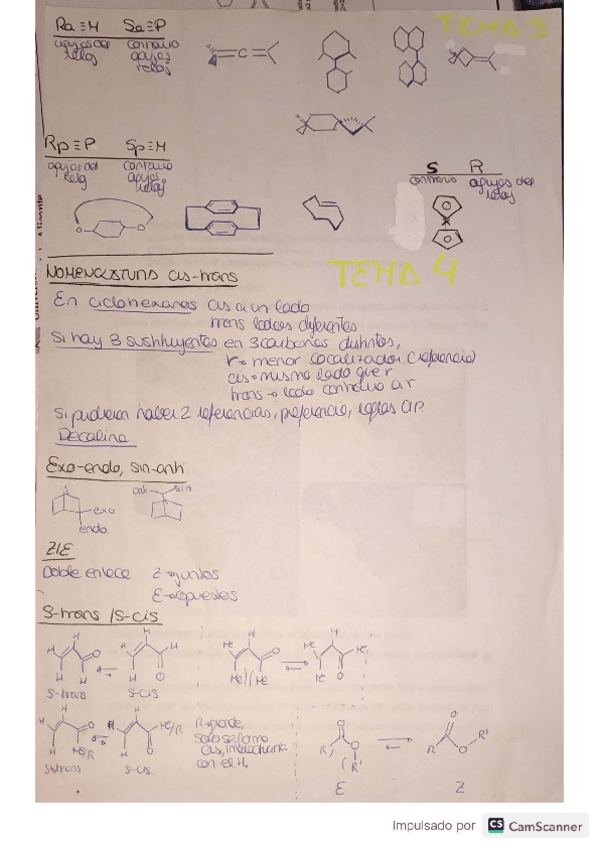 TEMA 3
Ra ≡ M   Sa ≡ P
agujas del reloj   contrario agujas reloj
C
Rp ≡ P   Sp ≡ M
agujas del reloj   contrario agujas reloj
S   R
contrario   agujas del reloj
TEMA 4
NOMENCLATURA cis-trans
En ciclohexanos cis a un lado
trans lados diferentes
Si hay 3 sustituyentes en 3 carbonos distintos,
r → menor localizador (referencia)
cis → mismo lado que r
trans → lado contrario a r
Si pudieran haber 2 referencias, preferencia, reglas CIP.
Decalina
Exo-endo, sin-anti
exo
endo
anti   sin
Z/E
Doble enlace   Z → juntos
E → opuestos
S-trans / S-cis
S-trans   S-cis
Me   H   O   Me)(Me
H   H   O   Me/R
S-trans   S-cis
R → grande,
con el H.
R   O   R'
E   Z
Impulsado por CS CamScanner